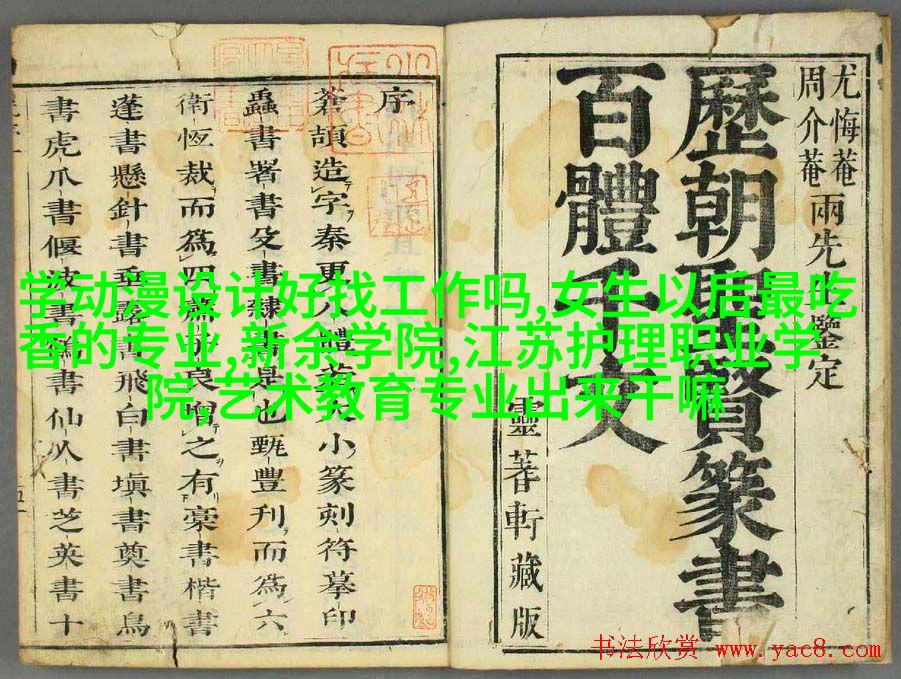 学动漫设计好找工作吗,女生以后最吃
香的专业,新余学院,江苏护理职业学
院,艺术教育专业出来干嘛
尤悔菴
周介菴
兩先生鑒定
歷朝聖賢篆書
百體千文
靈蓍軒藏版
序
蒼頡造字秦更八體大小篆刻符摹印
蟲書署書殳書隸書是也甄豐刋而爲六
衛恆裁而爲四之有豪書楷書
蓬書懸針書垂露書飛白書塡書奠書鳥
書虎爪書偃波書書仙人書芝英書十
书法欣赏 www.yac8.com